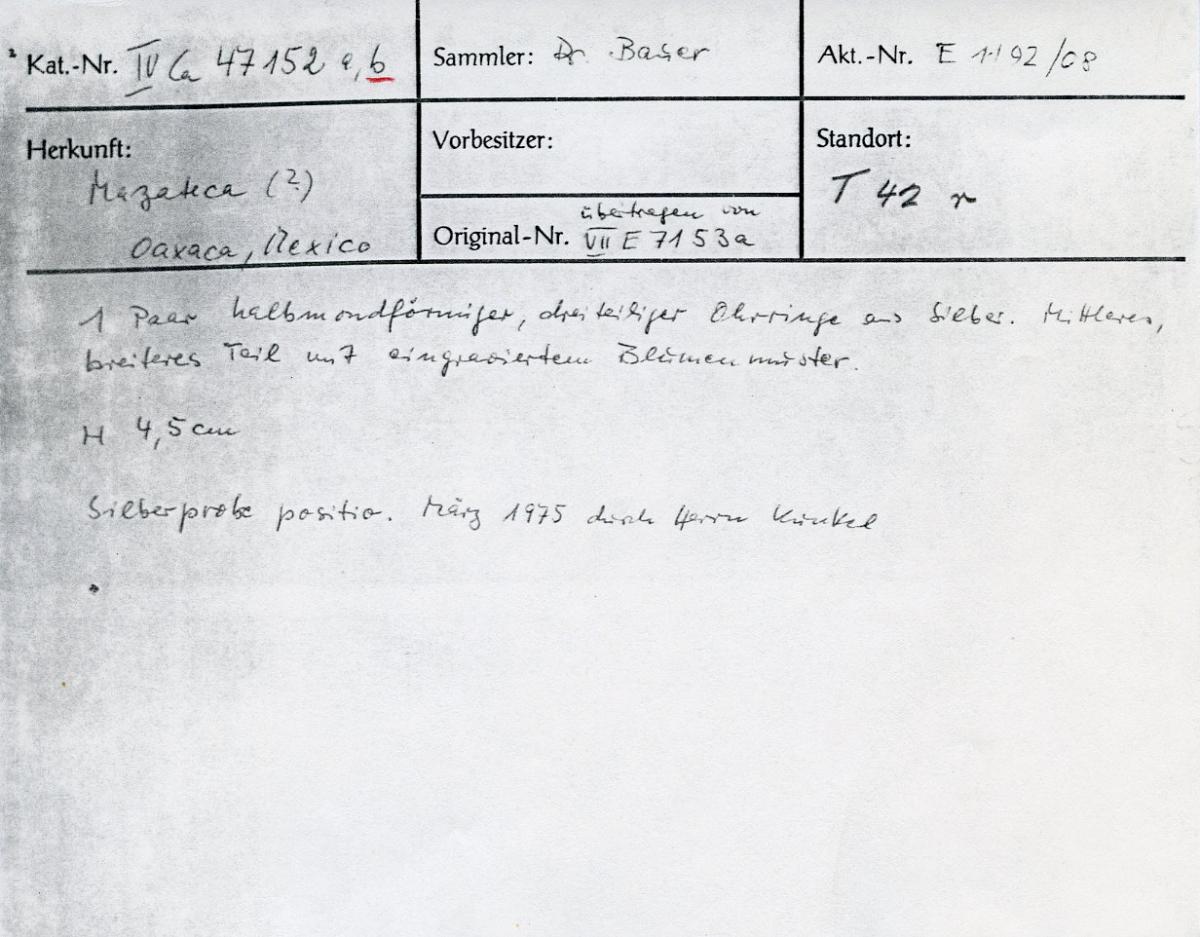 Kat.-Nr. IV Ca 47152 a, b
Sammler: Dr. Bauer
Akt.-Nr. E 1192/08
Herkunft:
Mazateca (?)
Oaxaca, Mexico
Vorbesitzer:
Original-Nr. übertragen von
VII E 7153a
Standort:
T 42
1 Paar halbmondförmiger, dreiteiliger Ohrringe aus Silber. Mittleres,
breiteres Teil mit eingraviertem Blumenmuster.
H 4,5 cm
Silberprobe positiv. März 1975 durch Herrn Kunkel